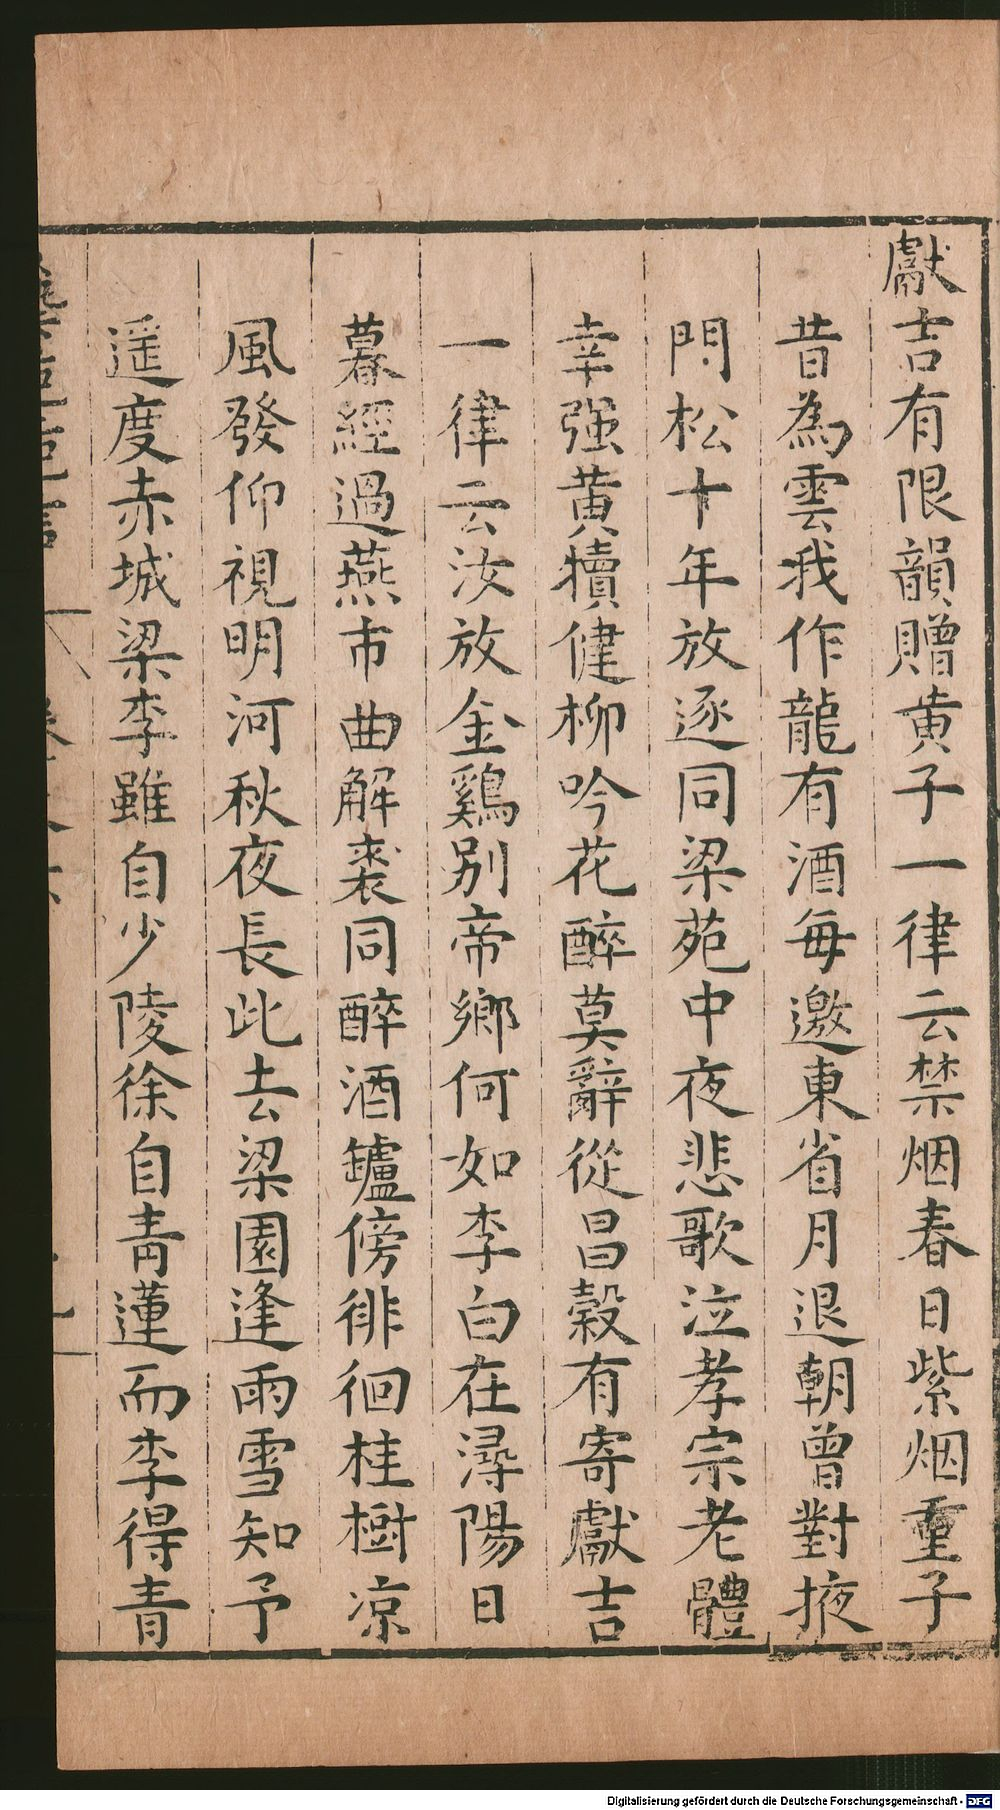 獻吉有限韻贈黄子一律云禁烟春日紫烟重子
昔為雲我作龍有酒每邀東省月退朝曾對掖
門松十年放逐同梁苑中夜悲歌泣孝宗老體
幸强黄犢健柳吟花醉莫辭從昌穀有寄獻吉
一律云汝放金鷄别帝鄉何如李白在潯陽日
暮經過燕市曲解裘同醉酒鑪傍徘徊桂樹凉
風發仰視明河秋夜長此去梁園逢雨雪知予
遥度赤城梁李雖自少陵徐自青蓮而李得青
Digitalisierung gefördert durch die Deutsche Forschungsgemeinschaft - DFG